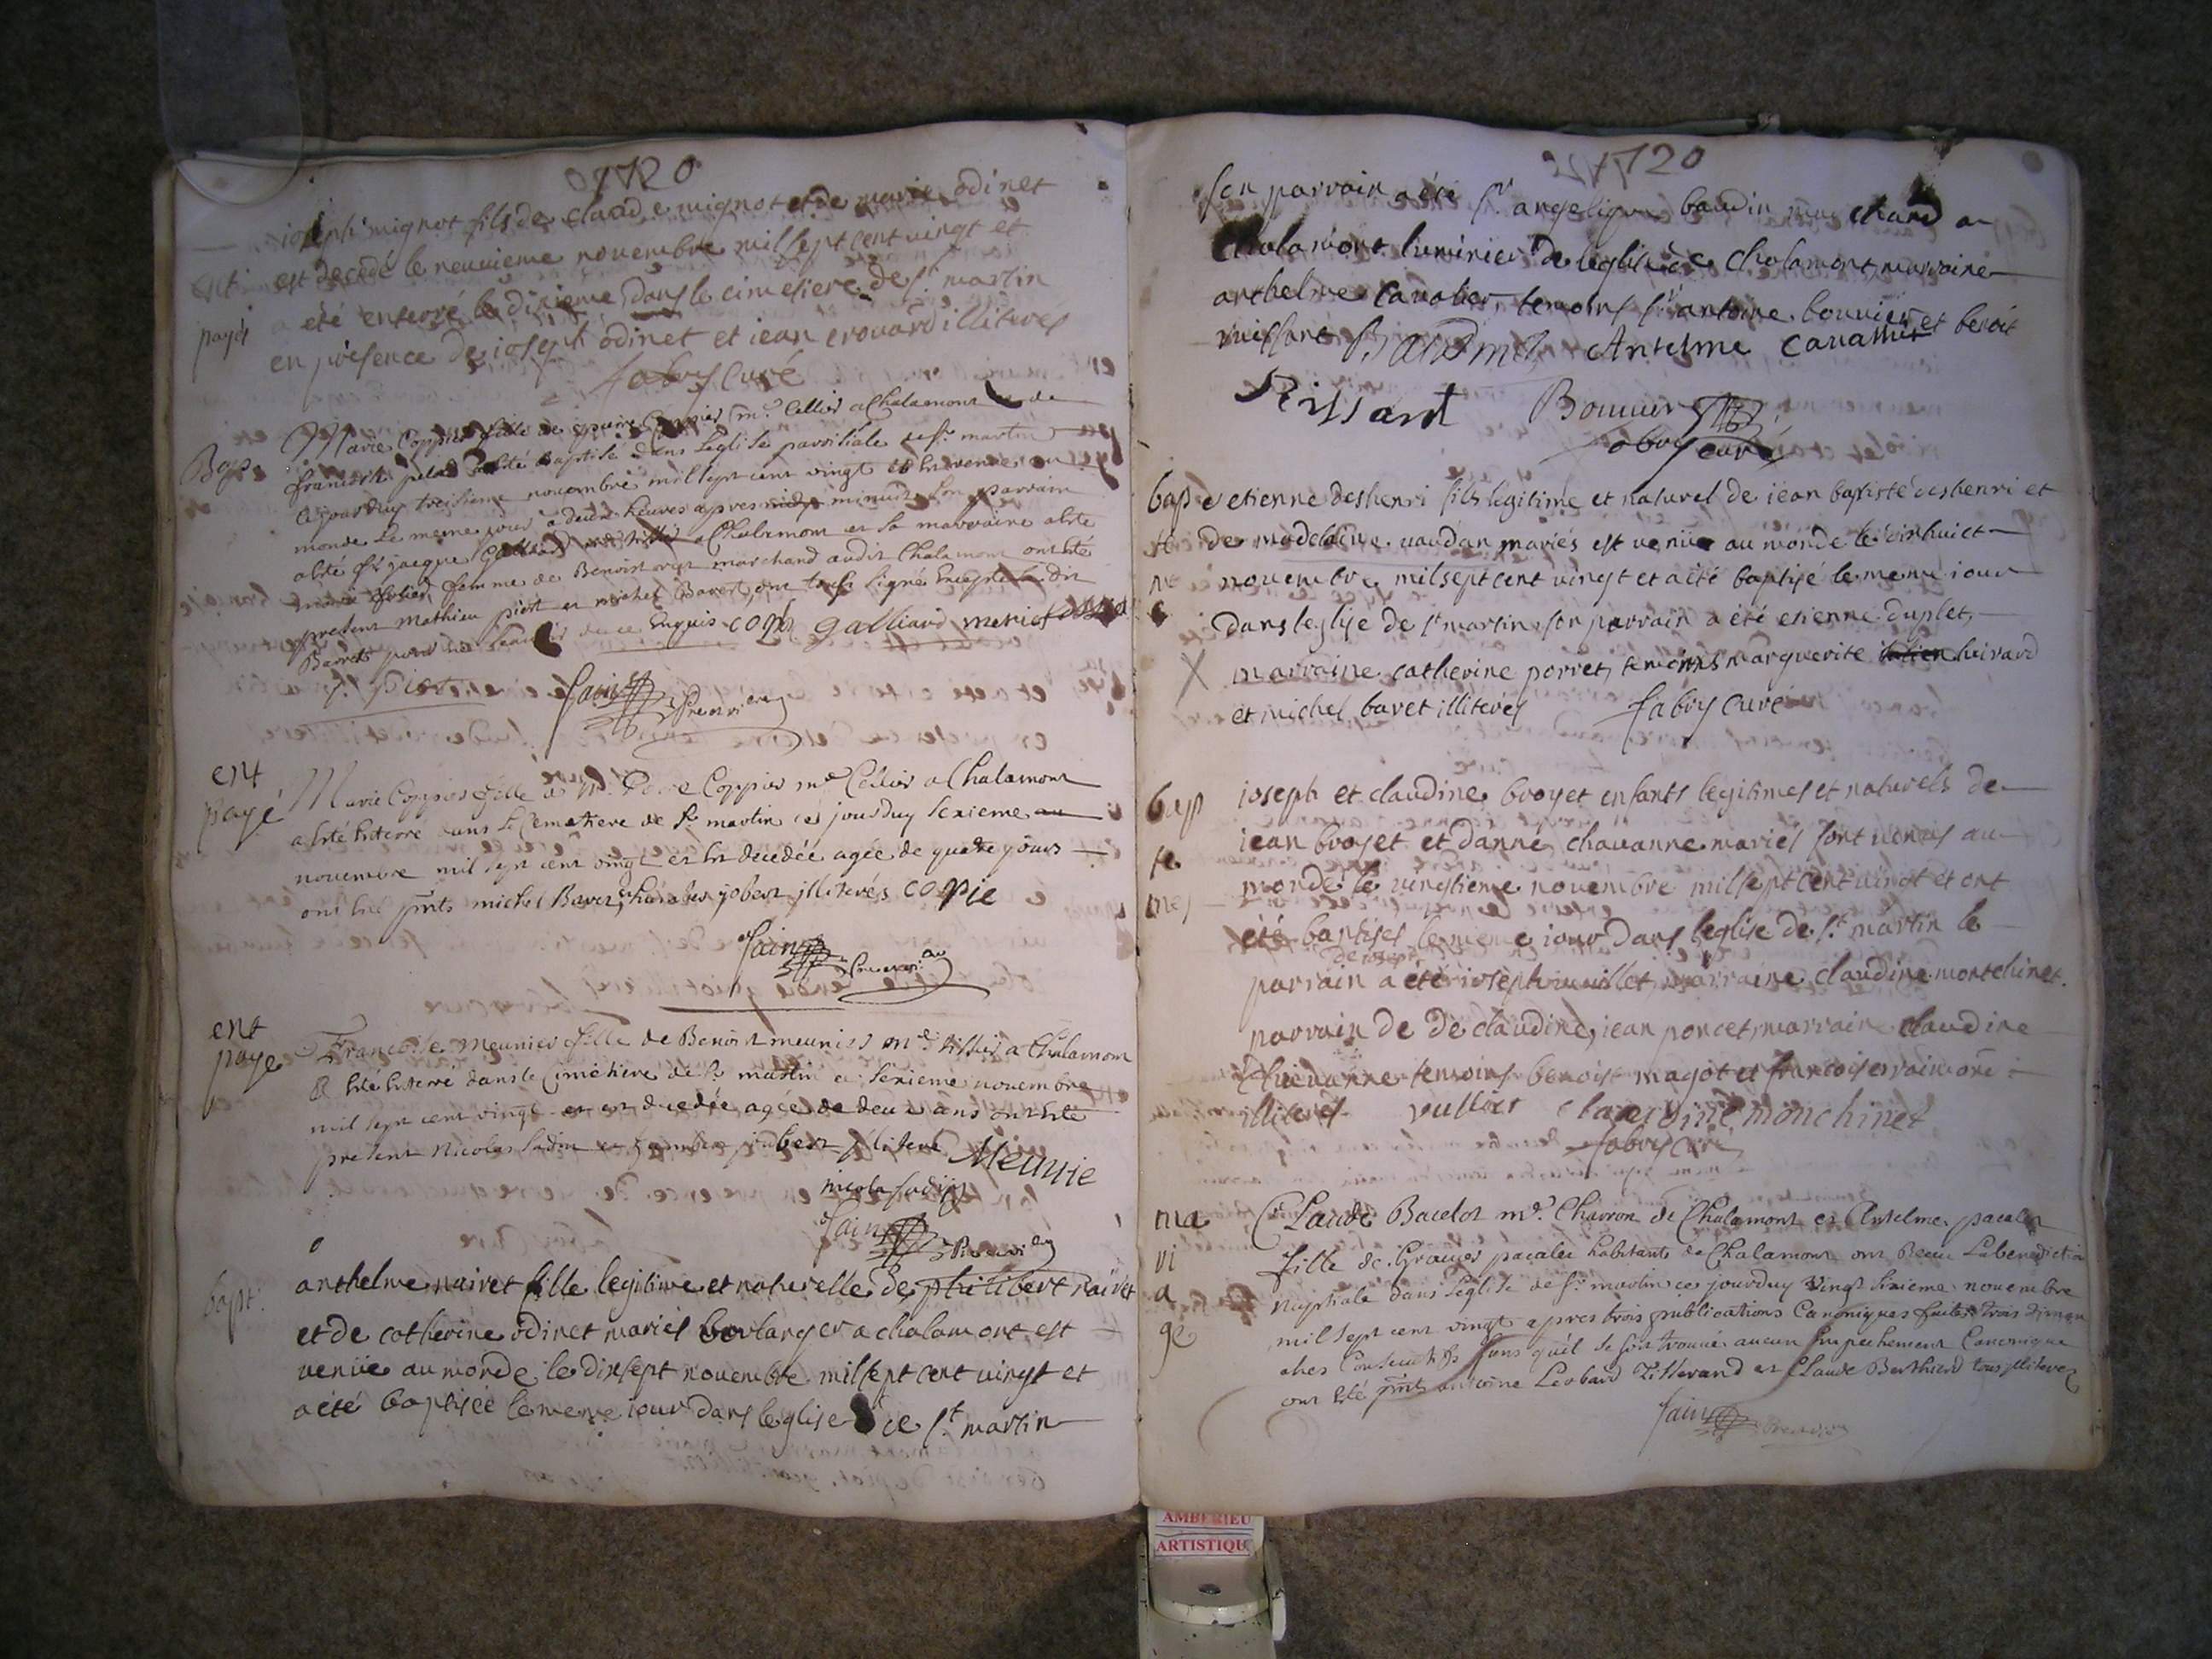 1720
ioseph mignot fils de claude mignot et de marie odinet
ent est decedé le neuuieme nouembre mil sept cent vingt et
payé a été enterré le dixieme dans le cimetiere de st martin
en présence de ioseph odinet et iean erouard illiterés
fabry curé
Bap. Marie Coppier fille de pierre Coppier md Cellier a Chalamont de
francoise a esté Baptisé dans L'eglise paroisiale de st martin
ce jourduy treisieme nouembre mil sept cent vingt est venue au
monde Le meme jour a deux heures apres minuit son parrain
a esté sr jacque Galliard a Chalamont et sa marraine a esté
femme de Benoist marchand audit Chalamont ont esté
present Mathieu piot et michel Bavet ont signé Excepté le dit
Bavet pour ne Enquis copie galliard
piot
Sain
ent
payé
Marie Coppier fille de Pierre Coppier md Cellier a Chalamont
a esté Enterre dans Le Cemetiere de St martin ce jourduy sexieme
nouembre mil sept cent vingt et est decedée agée de quatre jours
ont esté pnts michel Bavet jobert illiterés copie
Sain
ent
paye
Francoise Meunier fille de Benoist meunier md tissier a Chalamont
a Esté Enterré dans le Cimetiere de St martin ce sexieme nouembre
mil sept cent vingt et est decedée agée de deux ans ont Esté
present Nicolas Sadin et jobert illiteré Meunie
nicola sadin
Sain
bapt.
anthelme nairet fille legitime et naturelle de philibert nairet
et de catherine odinet mariés boulanger a chalamont est
venüe au monde le dixsept nouembre mil sept cent uingt et
a été baptisée le meme iour dans leglise de st martin
1720
son parrain a été sr angelique baudin marchand a
Chalamont luminier de leglise de Chalamont, marraine
anthelme Caualier, temoins sr antoine bouuier et benoit
rissard Baudin Antelme Cauallier
Rissard Bouuier
fabry curé
bap etienne deshenri fils legitime et naturel de iean baptiste deshenri et
te de madelaine vaudan mariés est venüe au monde le dixhuict
me nouembre mil sept cent vingt et a été baptisé le meme iour
dans leglise de st martin son parrain a été etienne duplet,
X marraine catherine porret, temoins marguerite huirard
et michel bavet illiterés fabry curé
bap
te
mes
ioseph et claudine broyet enfants legitimes et naturels de
iean broyet et danne chauanne mariés sont venus au
monde le vingtieme nouembre mil sept cent vingt et ont
été baptises le meme iour dans leglise de st martin le
de ioseph
parrain a été ioseph uuillet marraine claudine montchinet.
parrain de de claudine, iean poncet, marraine claudine
chauanne temoins benoist magot et francois
illiterés vullier claudine monchinet
fabry curé
ma
ri
a
ge
Claude Bacelot md Charron de Chalamont et Antelme pacalet
fille de Graues pacalet habitants de Chalamont ont Receu La benediction
Nuptiale dans L'eglise de St martin ce jourduy vingt sixieme nouembre
mil sept cent vingt apres trois publications Canoniques faites trois diman
ches Consecutifs sans qu'il se soit trouué aucun Empechement Canonique
ont Esté pnts antoine Leobard Tisserand et Claude Berthierd tous illiterez
Sain
AMBERIEU
ARTISTIQU